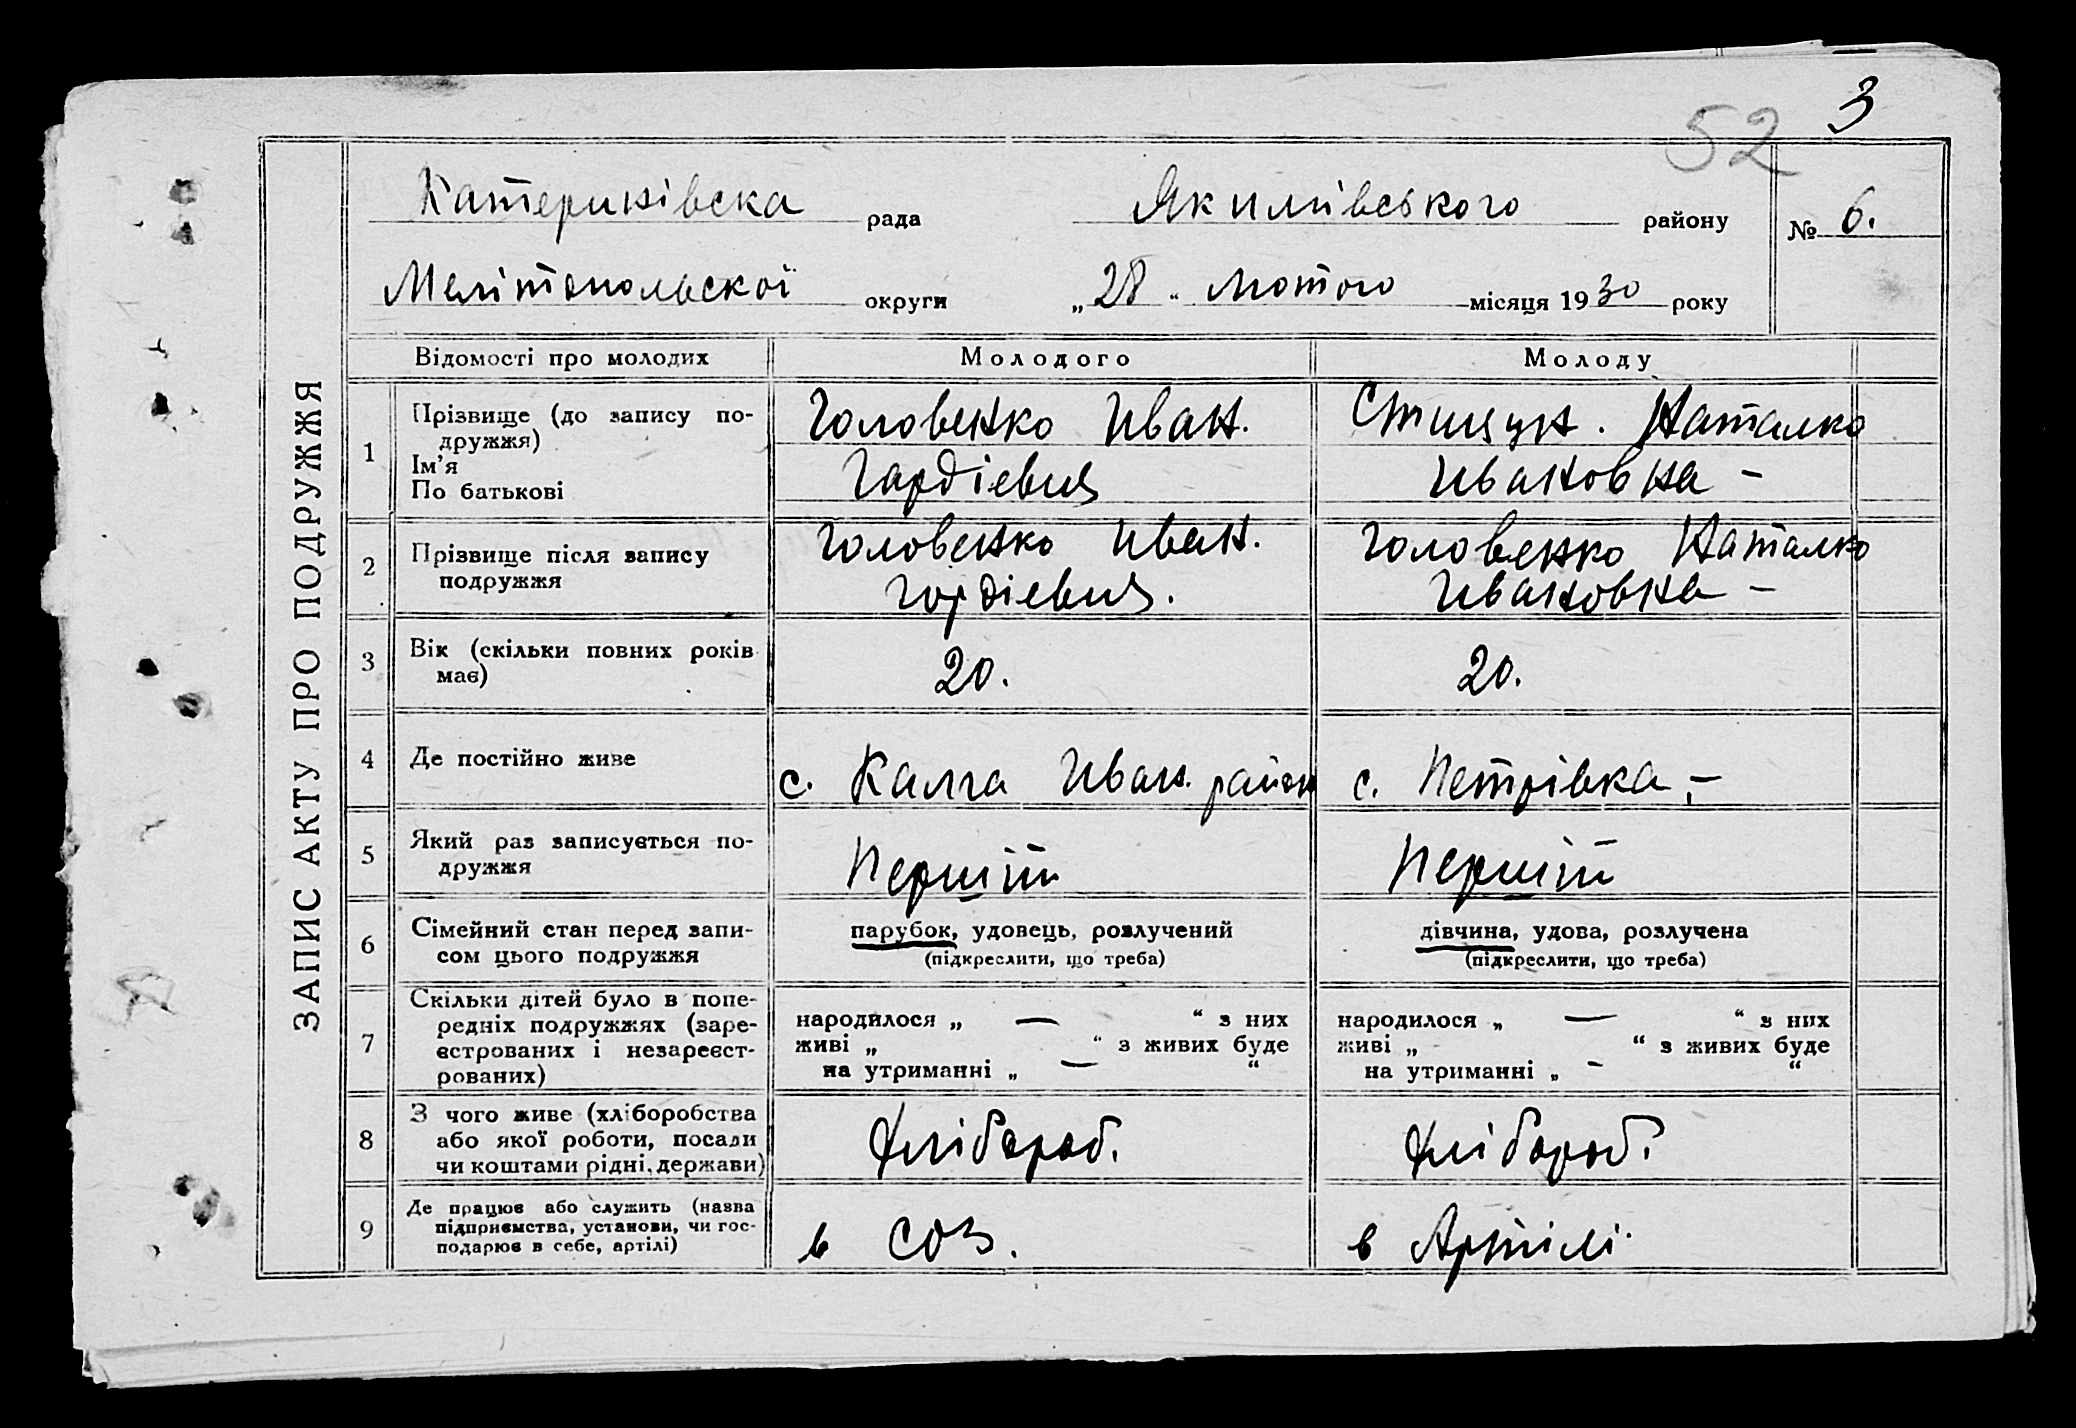 3
52
Катеринівска рада Якимівського району № 6.
Мелітопольскої округи „28" Лютого місяця 1930 року
ЗАПИС АКТУ ПРО ПОДРУЖЖЯ
Відомості про молодих Молодого Молоду
1 Прізвище (до запису по-
дружжя)
Ім'я
По батькові
Головенко Иван.
Гардіевич
Наталко
Ивановна –
2 Прізвище після запису
подружжя
Головенко Иван.
Гордіевич.
Головенко Наталко
Ивановна –
3 Вік (скільки повних років
має)
20.
20.
4 Де постійно живе
с. Калга Иван. район
с. Петрівка –
5 Який раз записується по-
дружжя
Перший
Перший
6 Сімейний стан перед запи-
сом цього подружжя
парубок, удовець, розлучений
(підкреслити, що треба)
дівчина, удова, розлучена
(підкреслити, що треба)
7 Скільки дітей було в попе-
редніх подружжях (заре-
єстрованих і незареєст-
рованих)
народилося „ — " з них
живі „ " з живих буде
на утриманні „ — "
народилося „ — " з них
живі „ " з живих буде
на утриманні „ – "
8 З чого живе (хліборобства
або якої роботи, посади
чи коштами рідні, держави)
Хлібороб.
Хлібороб.
9 Де працює або служить (назва
підприємства, установи, чи гос-
подарює в себе, артілі)
в СОЗ.
в Артілі.